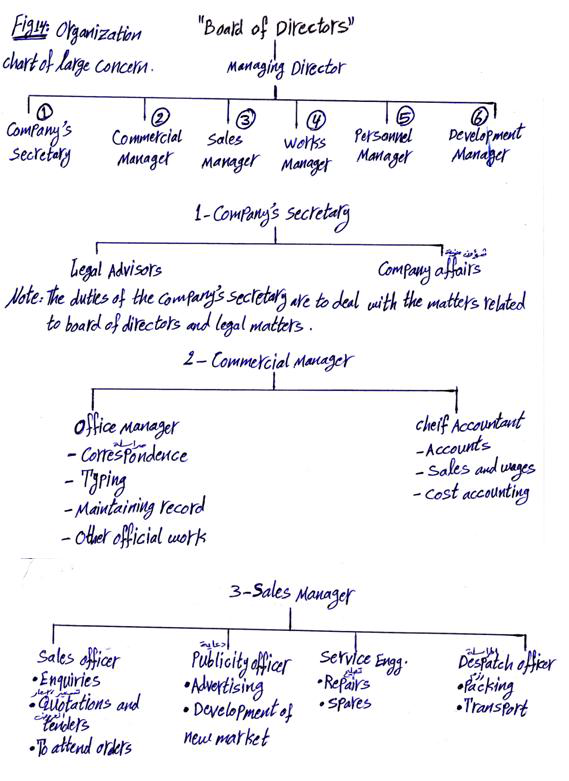 Fig14: Organization
chart of large concern.
"Board of Directors"
Managing Director
① Company's Secretary
② Commercial Manager
③ Sales Manager
④ Works Manager
⑤ Personnel Manager
⑥ Development Manager
1-Company's Secretary
Legal Advisors
Company affairs
Note: The duties of the company's secretary are to deal with the matters related
to board of directors and legal matters.
2-Commercial Manager
Office Manager
مراسلة
- Correspondence
- Typing
- Maintaining record
- Other official work
cheif Accountant
- Accounts
- Sales and wages
- Cost accounting
3-Sales Manager
Sales officer
• Enquiries
• Quotations and
tenders
• To attend orders
دعاية
Publicity officer
• Advertising
• Development of
new market
Service Engg.
• Repairs
• Spares
Despatch officer
• Packing
• Transport